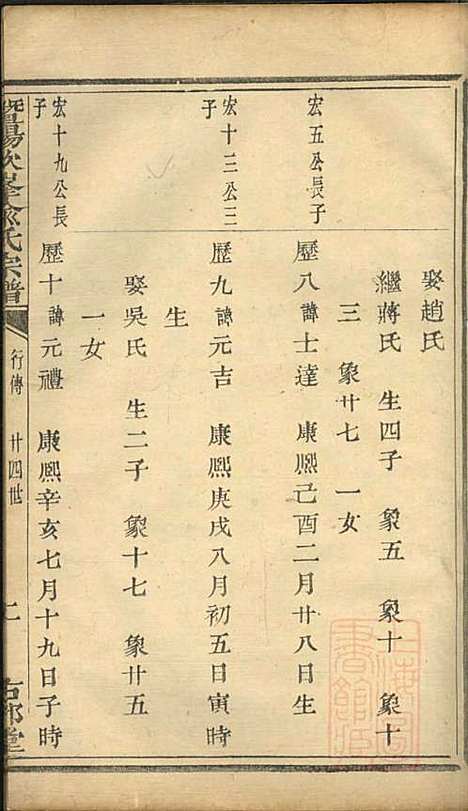 娶趙氏
繼蔣氏　生四子　象五　象十　象十
三　象廿七　一女
宏五公長子
歷八諱士達　康熙己酉二月廿八日生
宏十三公三
子
歷九諱元吉　康熙庚戌八月初五日寅時
生
娶吳氏　生二子　象十七　象廿五
一女
宏十九公長
子
歷十諱元禮　康熙辛亥七月十九日子時
暨陽次峯俞氏宗譜
行傳　廿四世
二